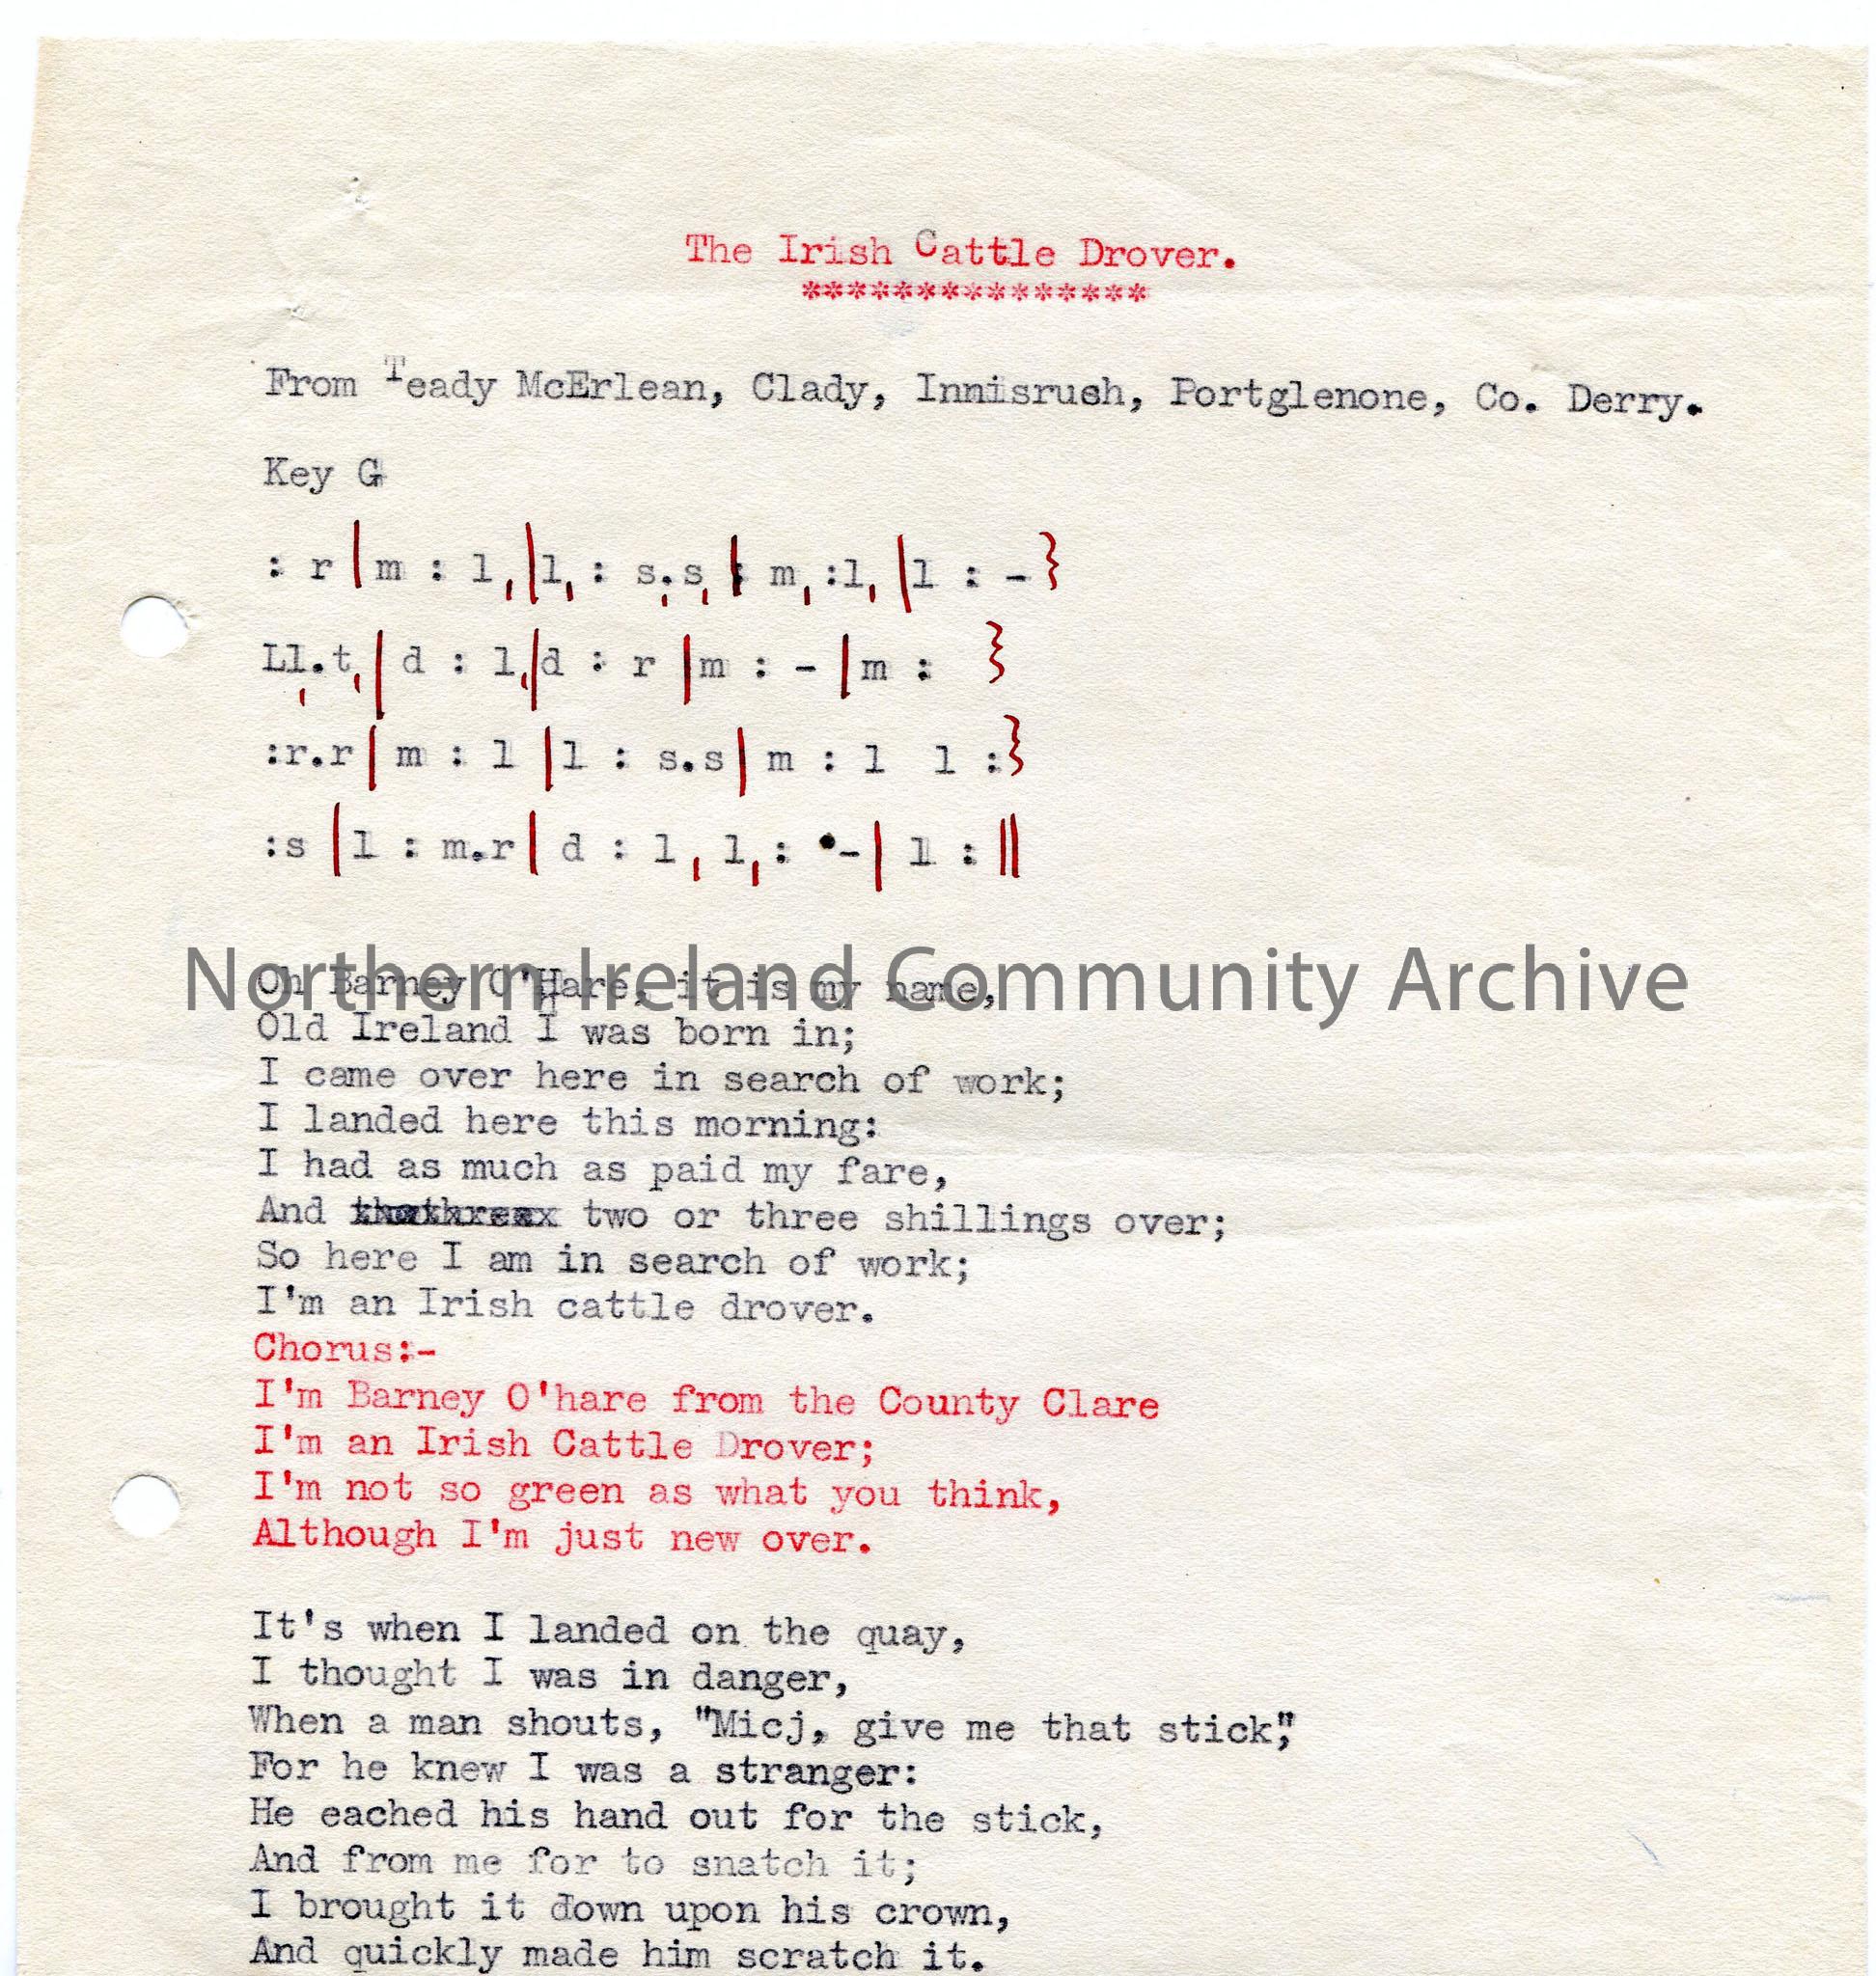 The Irish Cattle Drover.
***************
From Teady McErlean, Clady, Innisrush, Portglenone, Co. Derry.
Key G
: r | m : l, | l, : s.,s, | m, :l, | l : - }
Ll.,t, | d : l, | d : r | m : - | m : }
:r.r | m : l | l : s.s | m : l l : }
:s | l : m.r | d : l, l, : •- | l : ||
Northern Ireland Community Archive
Oh Barney O'Hare, it is my name,
Old Ireland I was born in;
I came over here in search of work;
I landed here this morning:
I had as much as paid my fare,
And two or three shillings over;
So here I am in search of work;
I'm an Irish cattle drover.
Chorus:-
I'm Barney O'hare from the County Clare
I'm an Irish Cattle Drover;
I'm not so green as what you think,
Although I'm just new over.
It's when I landed on the quay,
I thought I was in danger,
When a man shouts, "Micj, give me that stick",
For he knew I was a stranger:
He eached his hand out for the stick,
And from me for to snatch it;
I brought it down upon his crown,
And quickly made him scratch it.